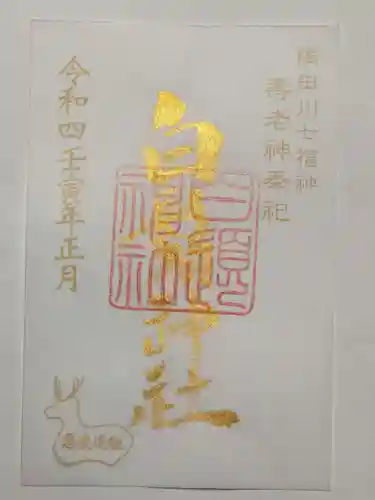 隅田川七福神
壽老神奉祀
白鬚神社
白鬚神社
令和四壬寅年正月